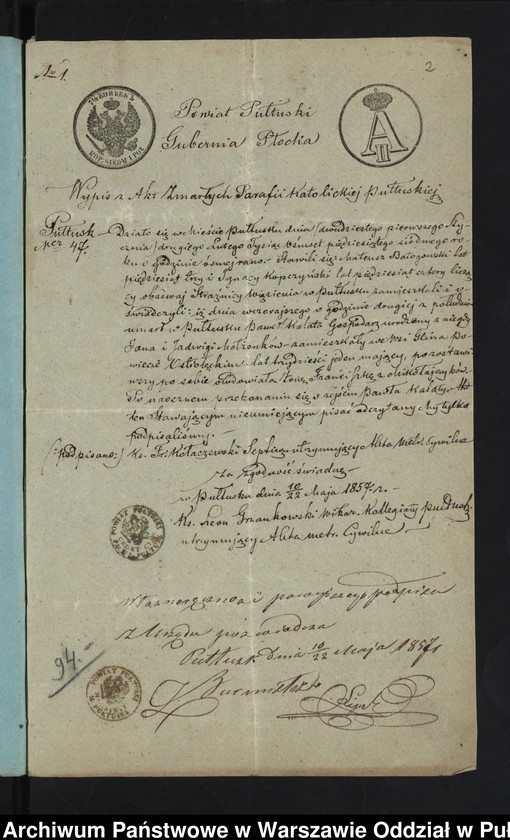 No 1.
2
7½ КОПѢЕКЪ
KOP. SIEDM I PÓŁ
A II
Powiat Pułtuski
Gubernia Płocka
Wypis z Akt Zmarłych Parafii Katolickiej Pułtuskiej
Pułtusk
Nr 47.
Działo się w Mieście Pułtusku dnia dwudziestego pierwszego Sty-
cznia / drugiego Lutego Tysiąc ośmset pięćdziesiątego siódmego ro-
ku o godzinie ósmej rano. Stawili się: Mateusz lat
pięćdziesiąt trzy i Ignacy Kopczyński lat pięćdziesiąt cztery liczą-
cy obadwaj Strażnicy Więzienia w Pułtusku zamieszkali i o-
świadczyli: iż dnia wczorajszego o godzinie drugiej z południa
umarł w Pułtusku Paweł Kalata Gospodarz urodzony z niegdy
Jana i Jadwigi Małżonków zamieszkały we wsi Glina Po-
wiecie Ostrołęckim lat trzydzieści jeden mający, pozostawi-
wszy po sobie owdowiałą żonę Franciszkę z Mikołajczyków.
Po naocznem przekonaniu się o zejściu Pawła Kalaty Akt
ten Stawającym nieumiejącym pisać odczytany my tylko
podpisaliśmy.
(podpisano:) Ks. Fr. Kołaczewski utrzymujący Akta metr. Cywilne
Za zgodność świadczę
w Pułtusku dnia 10/22 Maja 1857 r.
Ks. Leon Grzankowski Wikar. Kollegiaty Pułtusk.
utrzymujący Akta metr. Cywilne
Własnoręczność powyższego podpisu
z Urzędu poświadcza
Pułtusk dnia 10/22 Maja 1857 r
Burmistrz
94.
POWIAT PUŁTUSKI
POWIAT PUŁTUSKI
Archiwum Państwowe w Warszawie Oddział w Puł